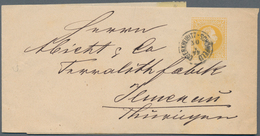 Herren
Abicht & Co
Terralithfabrik
Ilmenau
Thüringen